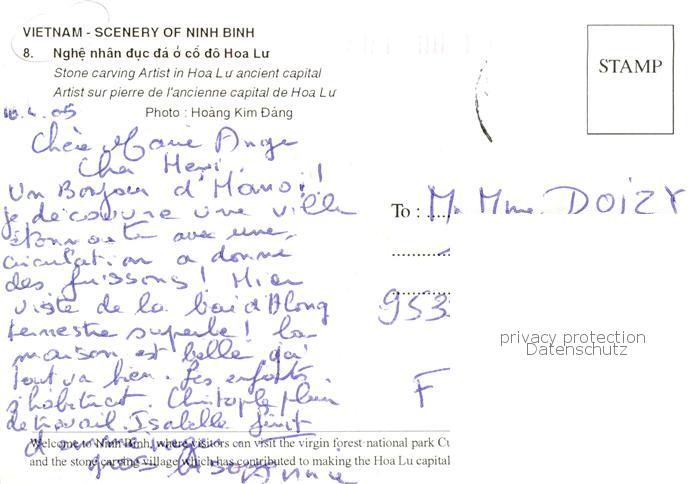 VIETNAM - SCENERY OF NINH BINH
8. Nghệ nhân đục đá ở cố đô Hoa Lư
Stone carving Artist in Hoa Lư ancient capital
Artist sur pierre de l'ancienne capital de Hoa Lư
Photo : Hoàng Kim Đáng
STAMP
10.4.05
Chère Marie Ange
Cher Henri.
Un Bonjour d'Hanoi!
je découvre une ville
étonnante avec une
circulation a donner
des frissons! Hier
visite de la baie d'Along
terrestre superbe! la
maison est belle
tout va bien. Les enfants
s'habituent. Christophe plein
de travail. Isabelle finit
d'emménager
gros bisous Annie
To : M. Mme. DOIZY
953
F
privacy protection
Datenschutz
Welcome to Ninh Binh, where visitors can visit the virgin forest national park Cu
and the stone carving village which has contributed to making the Hoa Lu capital